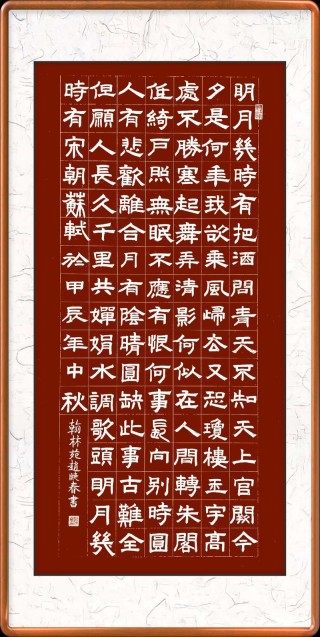 明月幾時有把酒問青天不知天上宮闕今
夕是何年我欲乘風歸去又恐瓊樓玉宇高
處不勝寒起舞弄清影何似在人間轉朱閣
低綺戶照無眠不應有恨何事長向別時圓
人有悲歡離合月有陰晴圓缺此事古難全
但願人長久千里共嬋娟水調歌頭明月幾
時有宋朝蘇軾於甲辰年中秋
翰林苑趙映春書